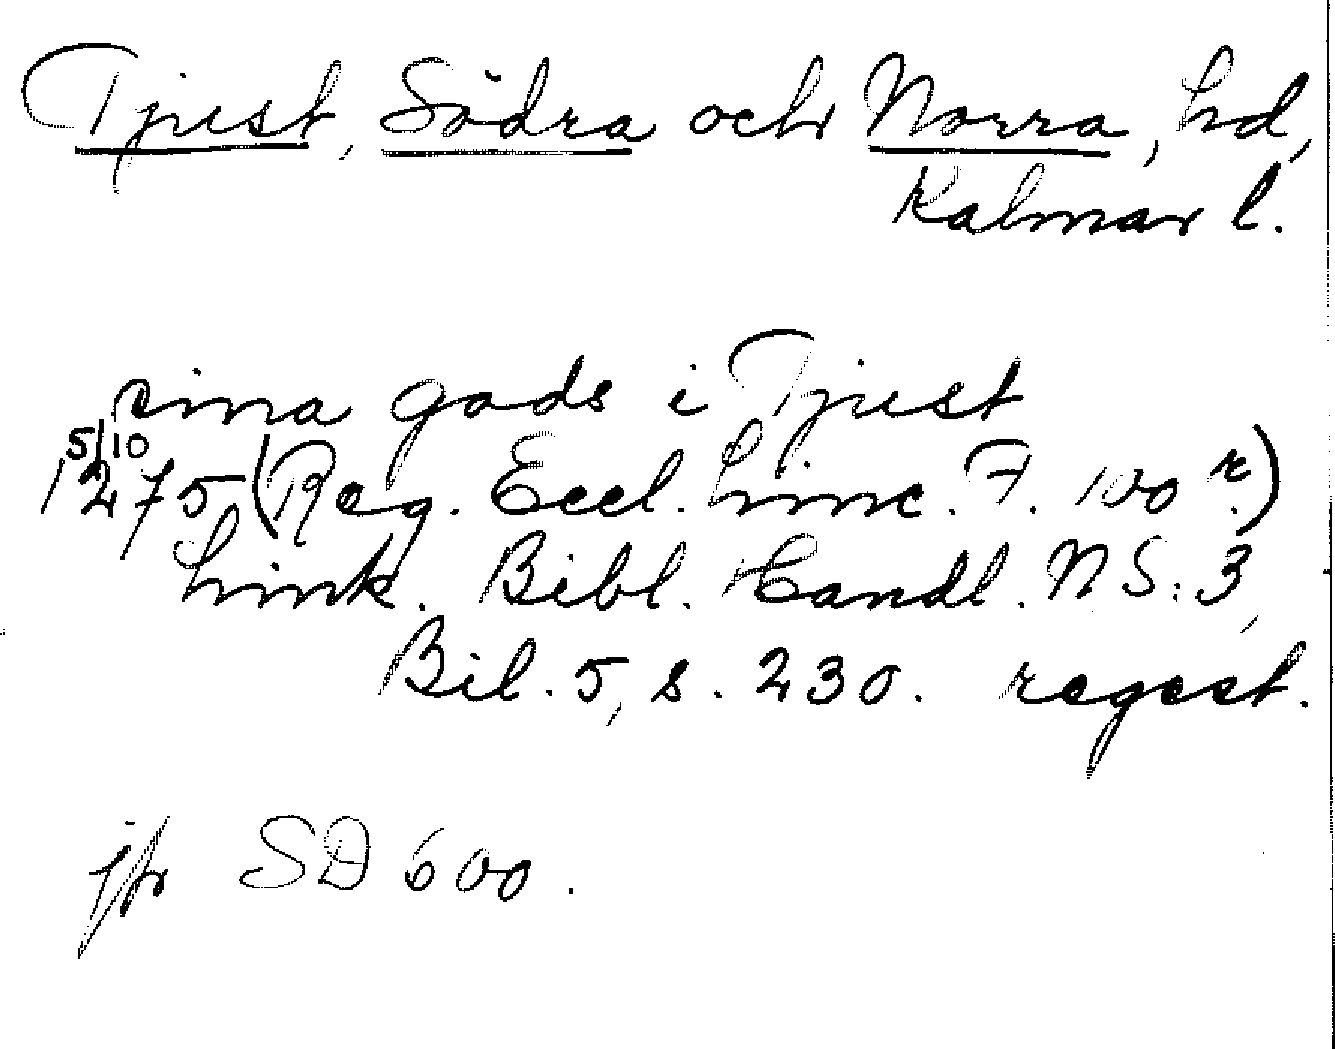 Tjust, Södra och Norra, hd,
Kalmar l.
sina gods i Tjust
5/10
1275 (Reg. Eccl. Linc. F. 100 r.)
Link. Bibl. Handl. NS: 3,
Bil. 5, s. 230. regest.
jfr SD 600.